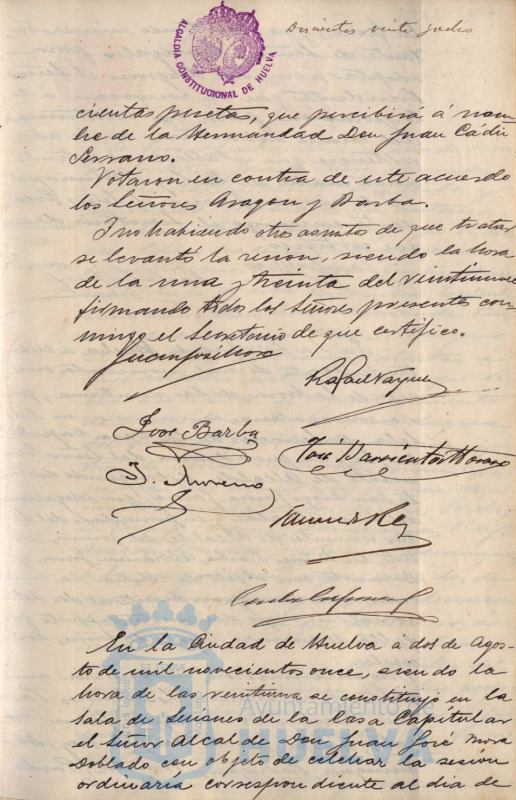 ALCALDIA CONSTITUCIONAL DE HUELVA
Doscientos veinte y
cientas pesetas, que percibirá á nom-
bre de la Hermandad Don Juan Cadiz
Serrano.
Votaron en contra de este acuerdo
los Señores Aragon y Barba.
I no habiendo otro asunto de que tratar
se levantó la sesion, siendo la hora
de la una y treinta del veintinueve
firmando todos los Señores presentes con-
migo el Secretario de que certifico.
Juan José Mora
Rafael Vazquez
José Barba
José Barrientos Moreno
J. Moreno
En la Ciudad de Huelva á dos de Agos-
to de mil novecientos once, siendo la
hora de las veintiuna se constituyó en la
sala de Sesiones de la Casa Capitular
el Señor Alcalde Don Juan José Mora
Doblado con objeto de celebrar la sesión
ordinaria correspondiente al dia de
Ayuntamiento de
HUELVA